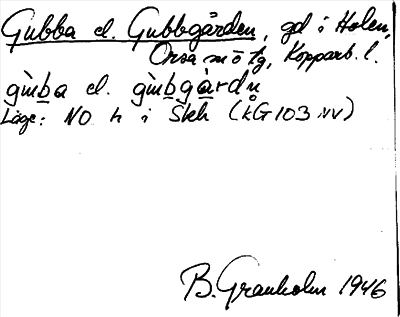 Gubba el. Gubbgården, gd i Holen,
Orsa sn o tg, Kopparb. l.
gùba el. gùbgàrdn̥
Läge: NO h i Skh (kG103 NV)
B. Granholm 1946